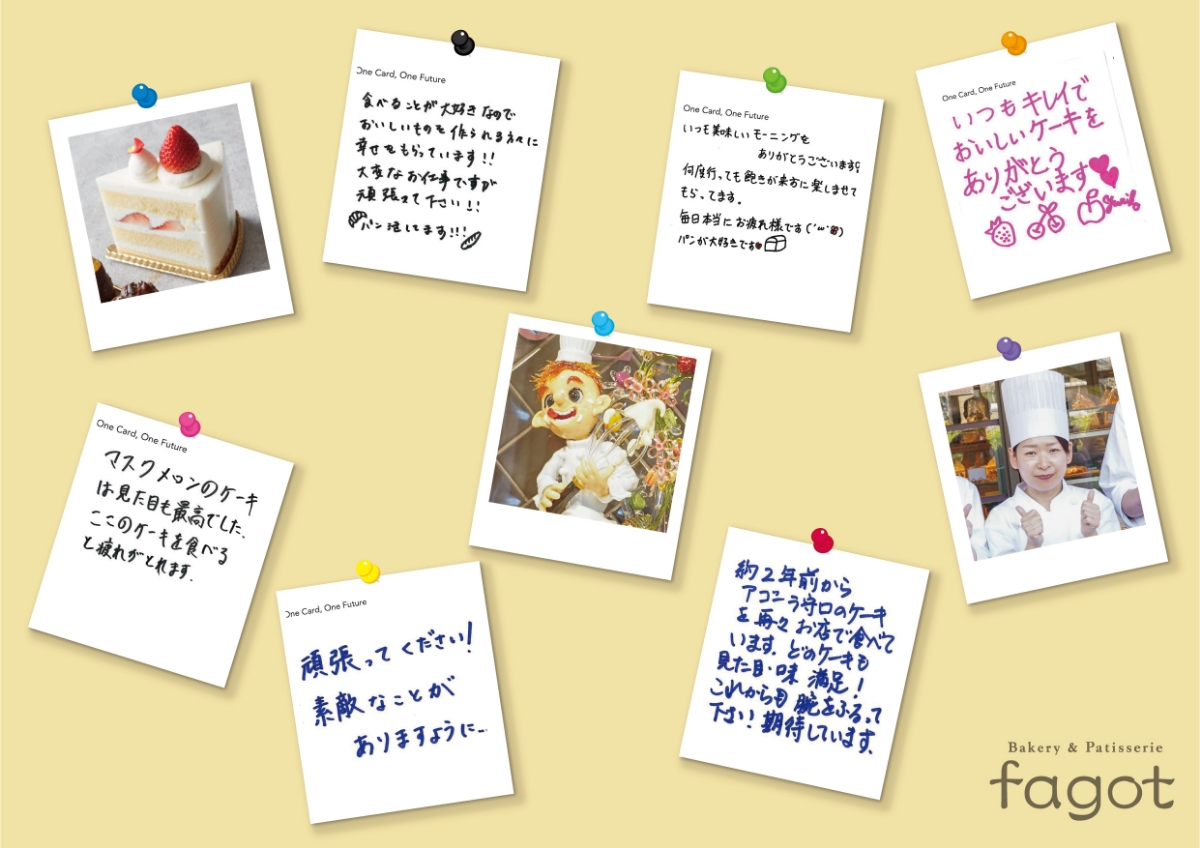 One Card, One Future
食べることが大好きなので
おいしいものを作られる方々に
幸せをもらっています!!
大変なお仕事ですが
頑張って下さい!!
パン活してます!!!
One Card, One Future
いつも美味しいモーニングを
ありがとうございます!
何度行っても飽きが来ずに楽しませて
もらってます。
毎日本当にお疲れ様です(´ω`)
パンが大好きです
One Card, One Future
いつもキレイで
おいしいケーキを
ありがとう
ございます
One Card, One Future
マスクメロンのケーキ
は見た目も最高でした。
ここのケーキを食べる
と疲れがとれます。
One Card, One Future
頑張ってください!
素敵なことが
ありますように…
約2年前から
アコニう守口のケーキ
を再々お店で食べて
います。どのケーキも
見た目・味 満足!
これからも腕をふるって
下さい!期待しています。
Bakery & Patisserie
fagot